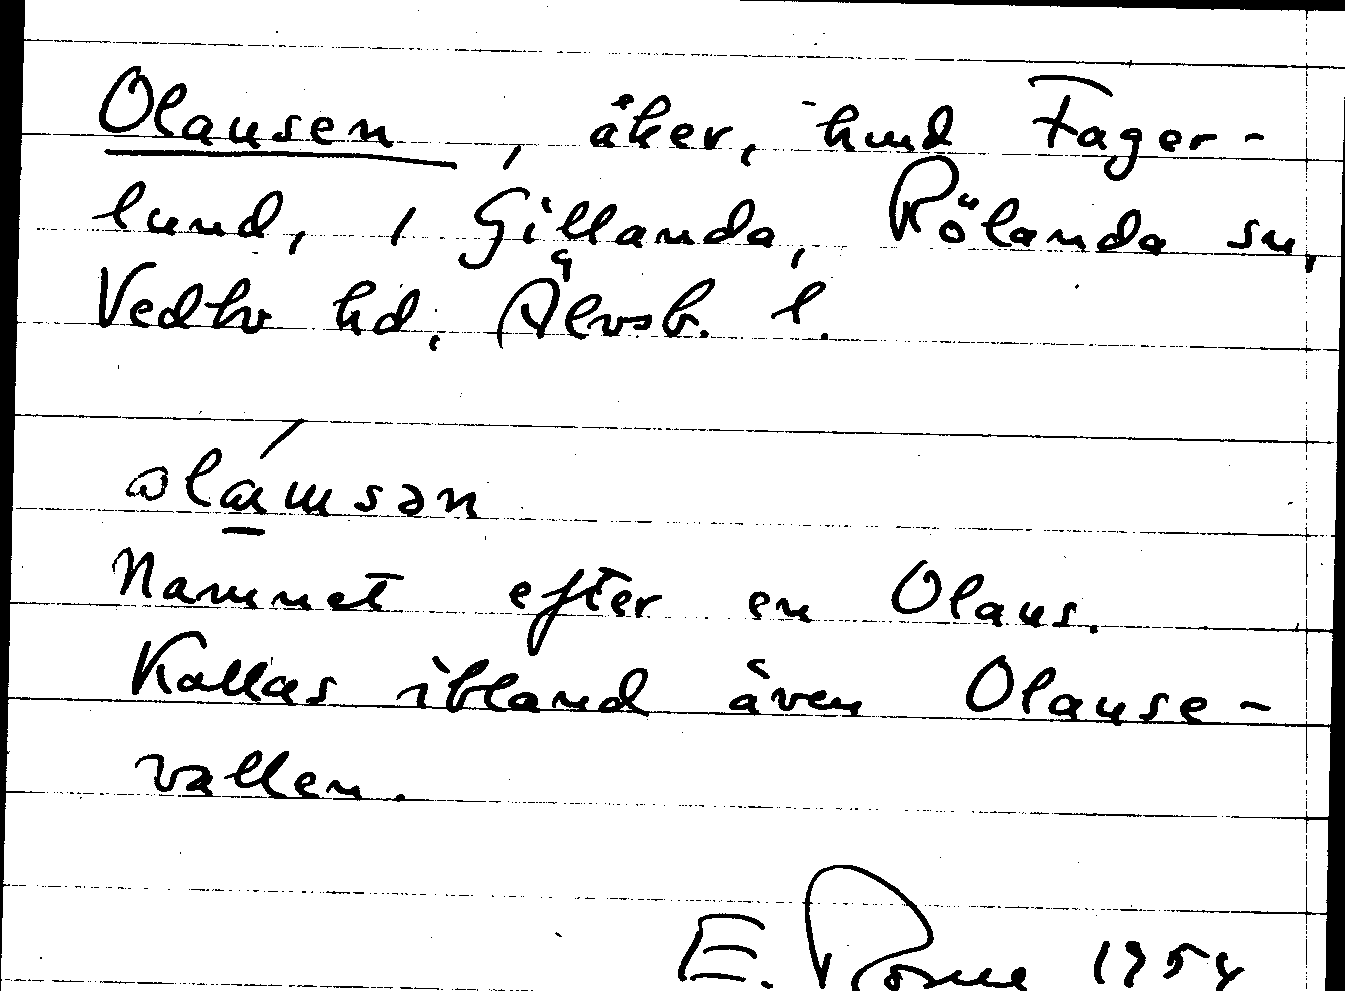 Olausen, åker, hmd Fager-
lund, 1 Gillanda, Rölanda sn,
Vedbo hd, Älvsb. l.
Namnet efter en Olaus.
Kallas ibland även Olause-
vallen.
E. 1954